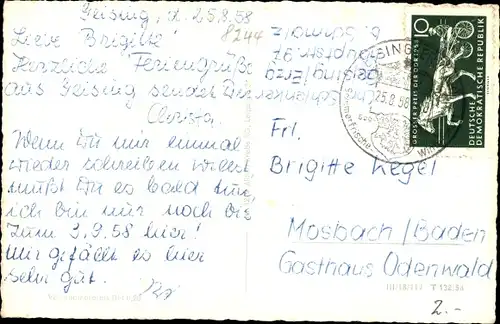 Geising, d. 25.8.58
8244
Liebe Brigitte!
Herzliche Feriengrüße
aus Geising sendet Dir
Christa.
Wenn Du mir einmal
wieder schreiben willst
mußt Du es bald tun
ich bin nur noch bis
zum 3.9.58 hier!
Mir gefällt es hier
sehr gut.
Frl.
Brigitte Kegel
Mosbach/Baden
Gasthaus Odenwald
10
GROSSER PREIS DER DDR 1958
DEUTSCHE
DEMOKRATISCHE REPUBLIK
GEISING
25.8.58
Sommerfrische
III/18/117 T 132/58
2.-